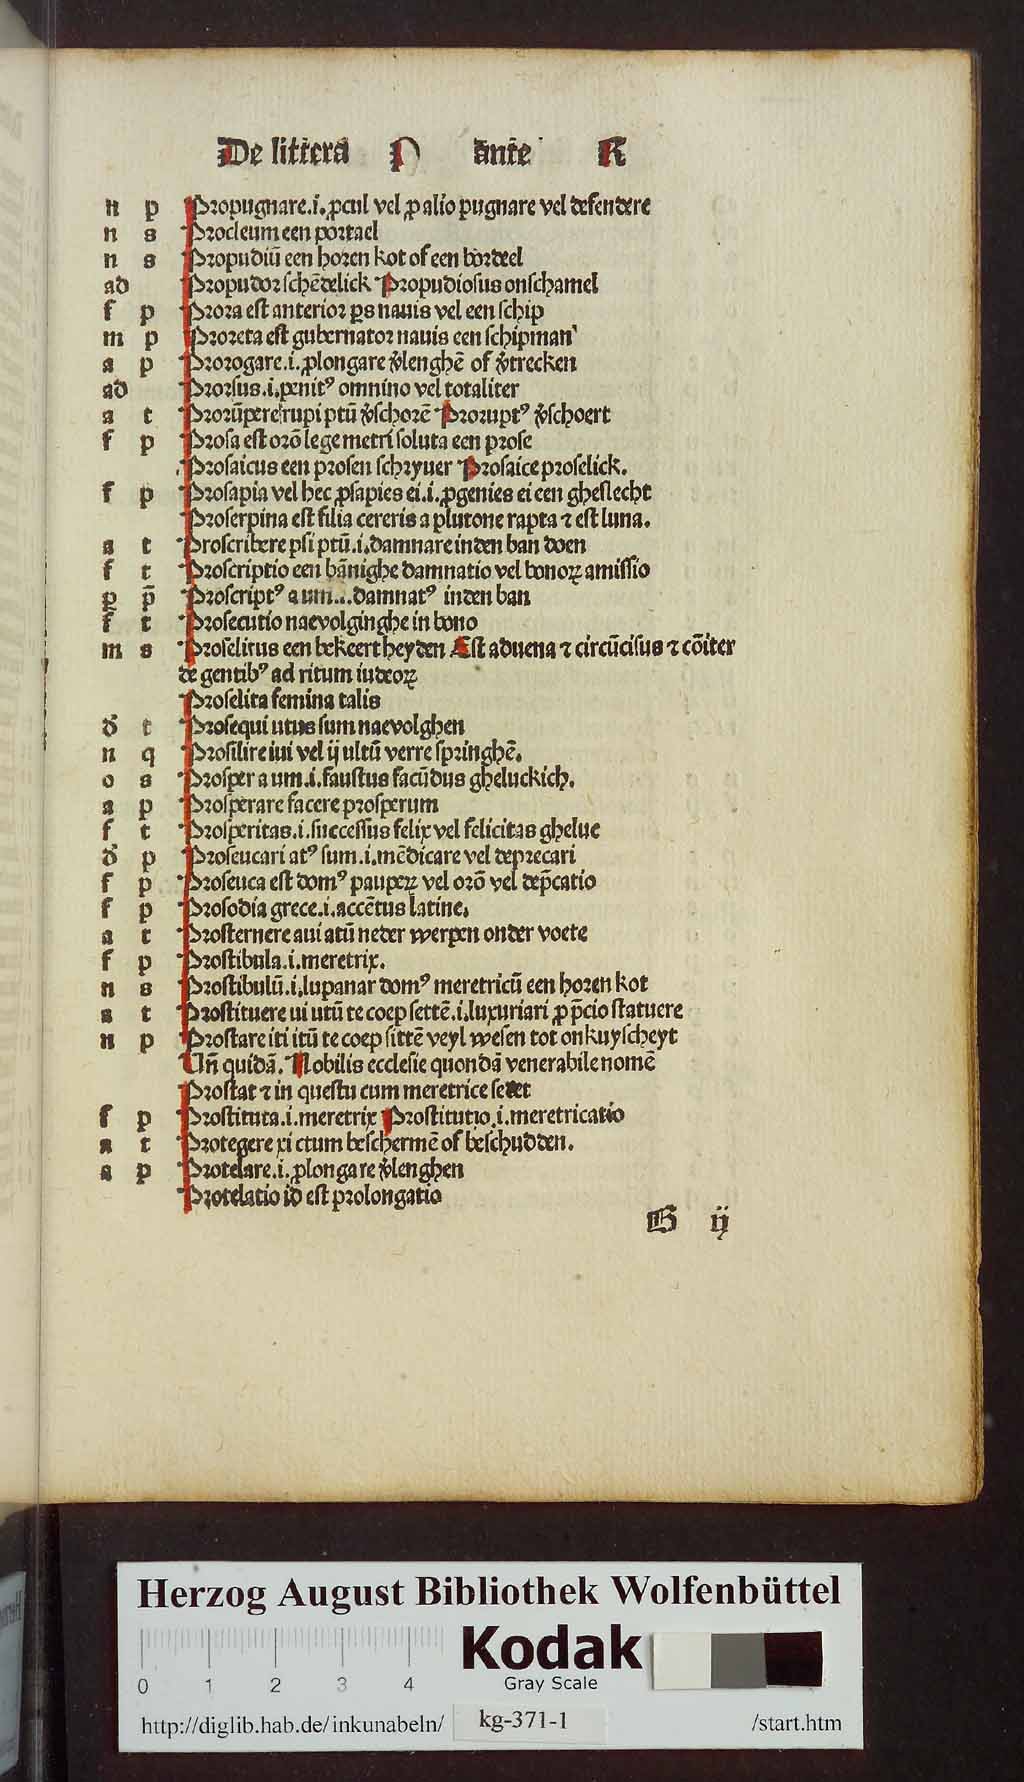 De littera P ante R
n p Propugnare.i. ꝓcul vel ꝓ alio pugnare vel defendere
n s Procleum een portael
n s Propudiū een horen kot of een bordeel
ad Propudor schēdelick Propudiosus onschamel
f p Prora est anterior ꝑs nauis vel een schip
m p Proreta est gubernator nauis een schipman
a p Prorogare.i. ꝓlongare v̄lenghē of v̄trecken
ad Prorsus.i. penitꝰ omnino vel totaliter
a t Prorūpere rupi ptū v̄schorē Proruptꝰ v̄schoert
f p Prosa est orō lege metri soluta een prose
Prosaicus een prosen schryuer Prosaice proselick.
f p Prosapia vel hec ꝓsapies ei.i. ꝓgenies ei een gheslecht
Proserpina est filia cereris a plutone rapta ⁊ est luna.
a t Proscribere psi ptū.i. damnare in den ban doen
f t Proscriptio een bānighe damnatio vel bonoꝝ amissio
ꝑ p̄ Proscriptꝰ a um.i. damnatꝰ in den ban
f t Prosecutio naevolginghe in bono
m s Proselitus een bekeert heyden Est aduena ⁊ circūcisus ⁊ cōiter
de gentibꝰ ad ritum iudeoꝝ
Proselita femina talis
d t Prosequi utus sum naevolghen
n q Prosilire iui vel ij ultū verre springhē.
o s Prosper a um.i. faustus facūdus gheluckich.
a p Prosperare facere prosperum
f t Prosperitas.i. successus felix vel felicitas ghelue
d p Proseucari atꝰ sum.i. mēdicare vel deprecari
f p Proseuca est domꝰ pauperꝝ vel orō vel dep̄catio
f p Prosodia grece.i. accētus latine.
a t Prosternere aui atū neder werpen onder voete
f p Prostibula.i. meretrix.
n s Prostibulū.i. lupanar domꝰ meretricū een horen kot
a t Prostituere ui utū te coep settē.i. luxuriari ꝓ p̄cio statuere
n p Prostare iti itū te coep sittē veyl wesen tot onkuyscheyt
Un̄ quidā. Nobilis ecclesie quondā venerabile nomē
Prostat ⁊ in questu cum meretrice sedet
f p Prostituta.i. meretrix Prostitutio.i. meretricatio
a t Protegere xi ctum beschermē of beschudden.
a p Protelare.i. ꝓlongare v̄lenghen
Protelatio id est prolongatio
G ij
Herzog August Bibliothek Wolfenbüttel
Kodak
Gray Scale
0 1 2 3 4
http://diglib.hab.de/inkunabeln/ kg-371-1 /start.htm